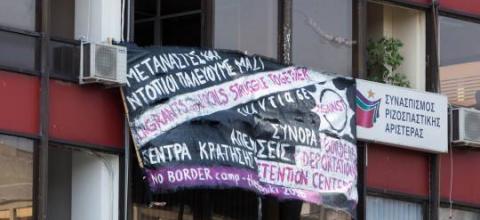 ΜΕΤΑΝΑΣΤΕΣ ΚΑΙ
ΝΤΟΠΙΟΙ ΠΑΛΕΥΟΥΜΕ ΜΑΖΙ
STRUGGLE TOGETHER
ΕΝΑΝΤΙΑ ΣΕ
AGAINST
ΣΥΝΟΡΑ
BORDERS
ΑΠΕΛΑΣΕΙΣ
DEPORTATIONS
ΚΕΝΤΡΑ ΚΡΑΤΗΣΗΣ
DETENTION CENTERS
NO BORDER camp
ΣΥΝΑΣΠΙΣΜΟΣ
ΡΙΖΟΣΠΑΣΤΙΚΗΣ
ΑΡΙΣΤΕΡΑΣ